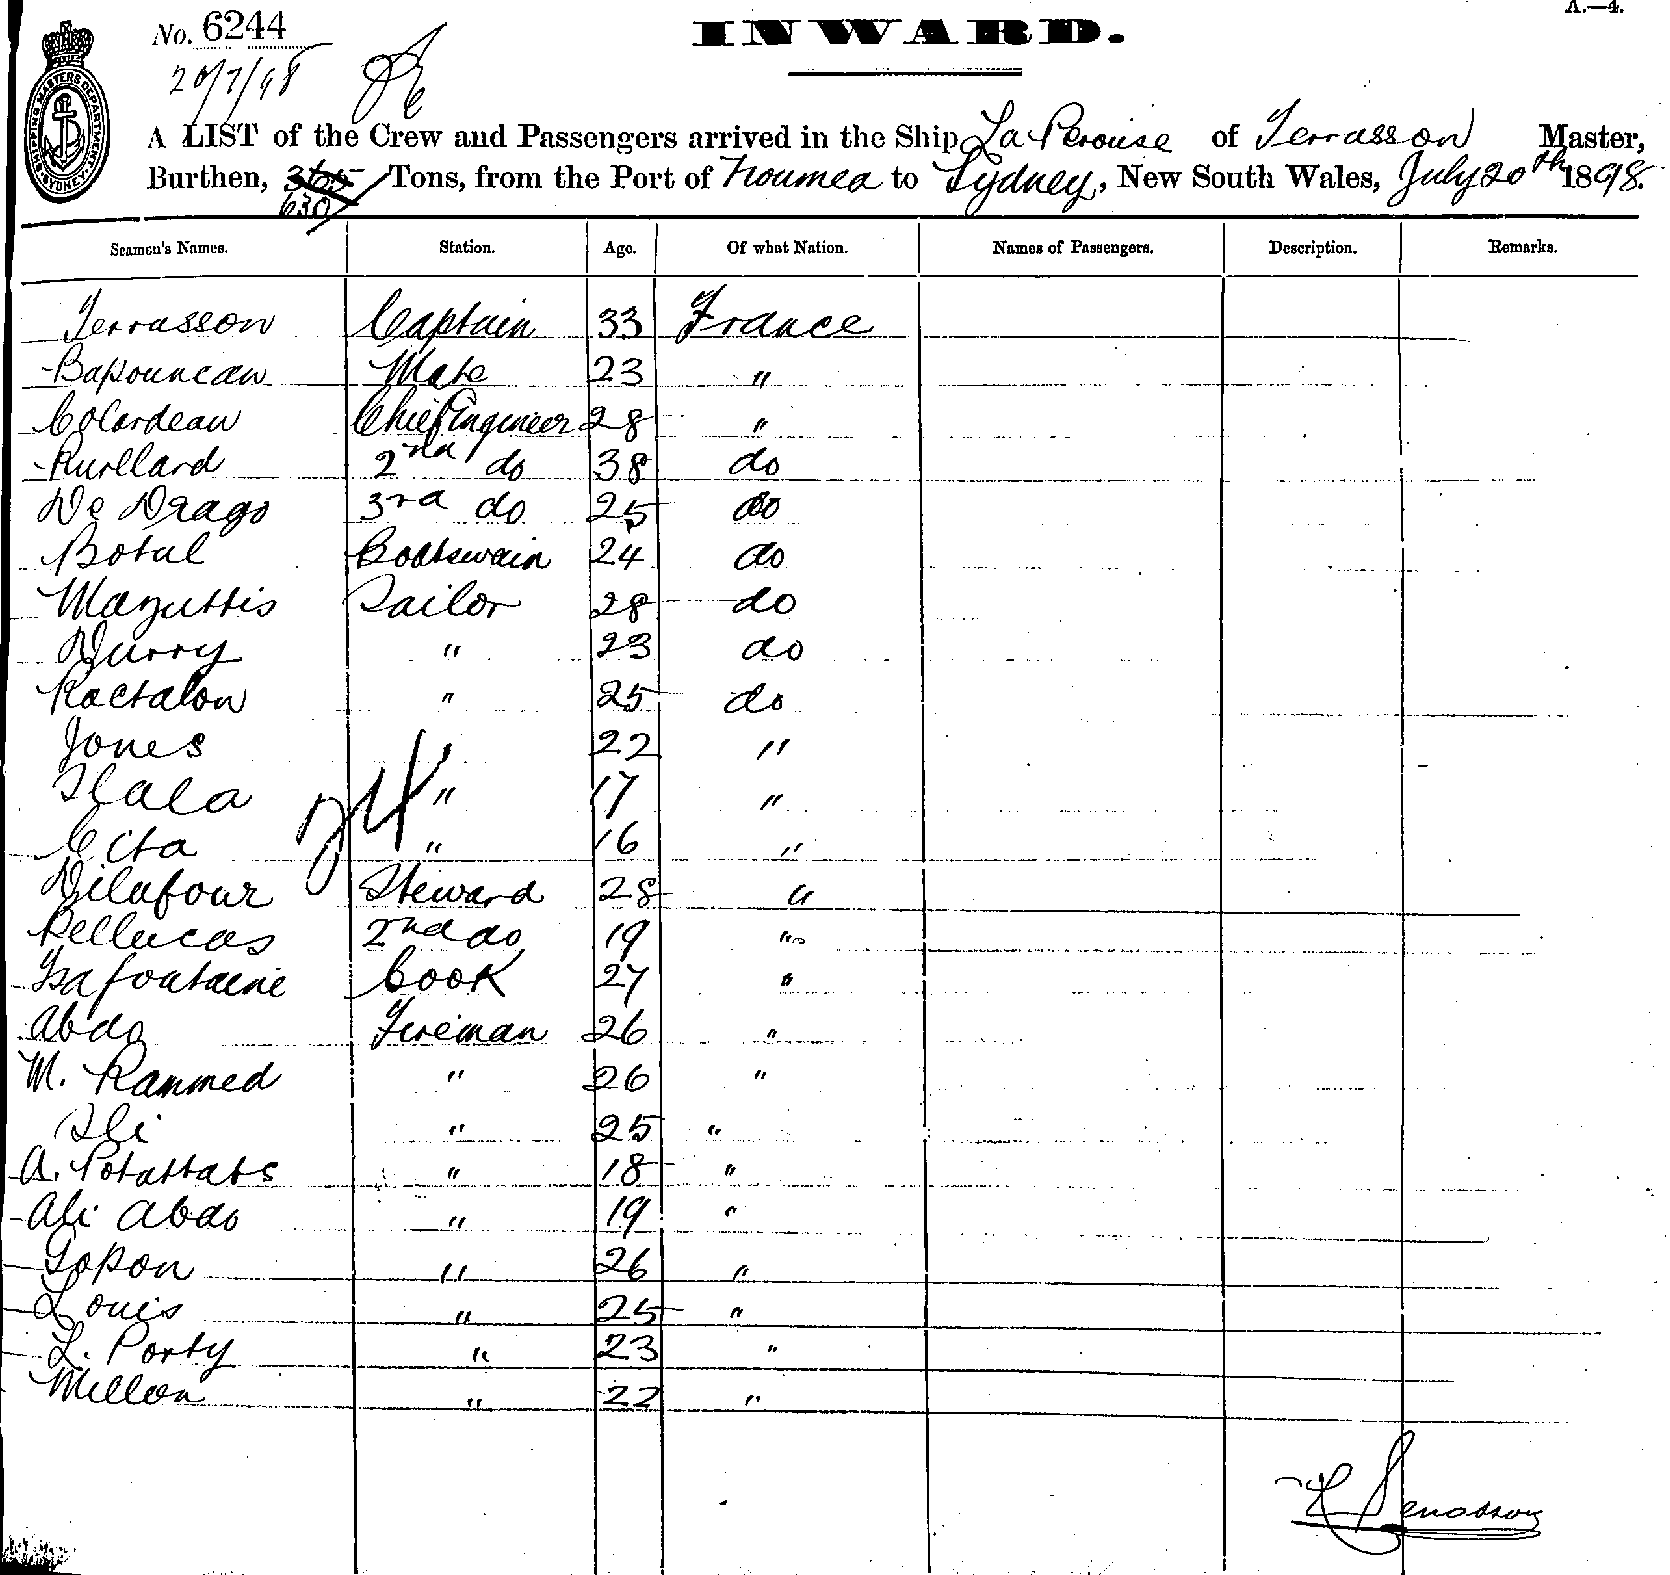 A.—4.
No. 6244
INWARD.
20/7/98
SHIPPING MASTERS DEPARTMENT SYDNEY
A LIST of the Crew and Passengers arrived in the Ship La Perouse of Terrasson Master,
Burthen, 365 Tons, from the Port of Noumea to Sydney, New South Wales, July 20th 1898.
630
Seamen's Names. Station. Age. Of what Nation. Names of Passengers. Description. Remarks.
Terrasson Captain 33 France
Mate 23 "
Colardeau Chief Engineer 28 "
Rurllard 2nd do 38 do
De Drago 3rd do 25 do
Botul Boatswain 24 do
Mazuttis Sailor 28 do
Durry " 23 do
Ractalon " 25 do
Jones " 22 "
Ilala " 17 "
Cita " 16 "
74
Dilafour Steward 28 "
Pellucas 2nd do 19 "
Lafontaine Cook 27 "
Abdo Fireman 26 "
M. Rammed " 26 "
Ali " 25 "
A. " 18 "
Ali Abdo " 19 "
Gopon " 26 "
Louis " 25 "
L. Porty " 23 "
Millon " 22 "
Terrasson